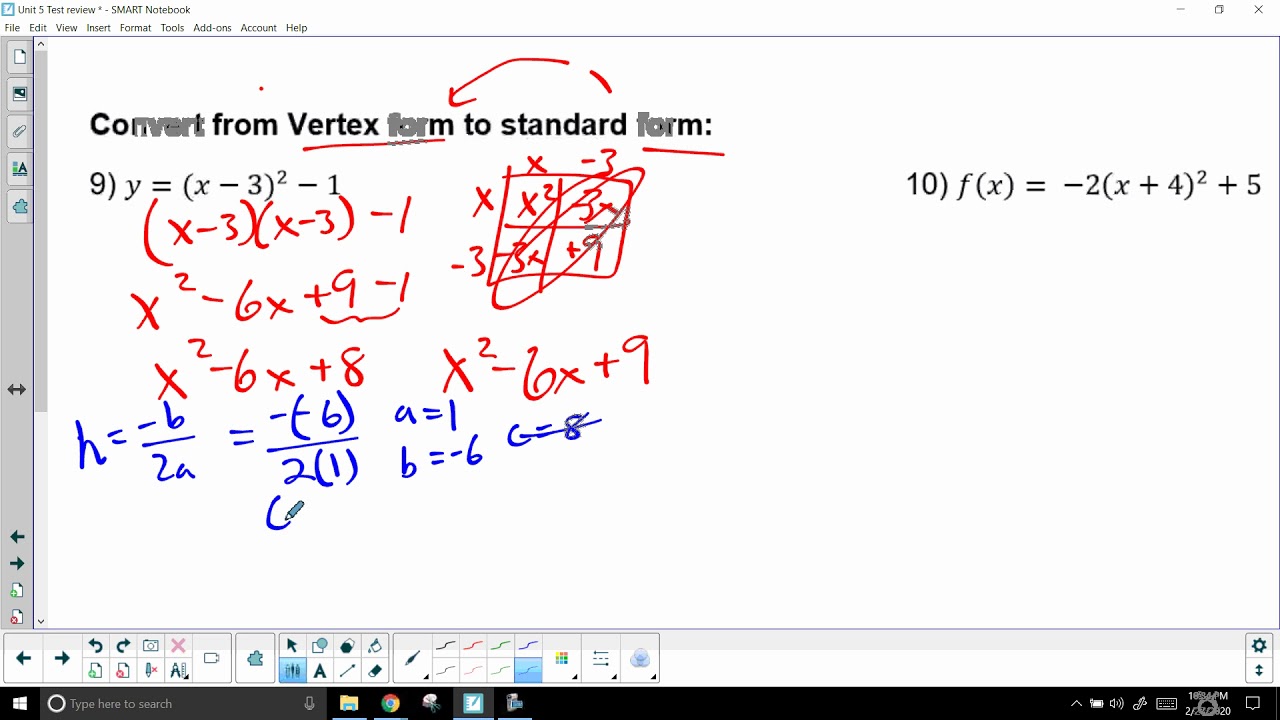 Unit 5 Test review * - SMART Notebook
File Edit View Insert Format Tools Add-ons Account Help
Convert from Vertex form to standard form:
9) y = (x − 3)² − 1
10) f(x) = −2(x + 4)² + 5
(x-3)(x-3) -1
x -3
x x² -3x
-3 -3x +9
x² -6x +9 -1
x² -6x +8
x² -6x +9
h = -b/2a = -(-6)/2(1)
a = 1
b = -6
c = 8
(
A
Type here to search
2020